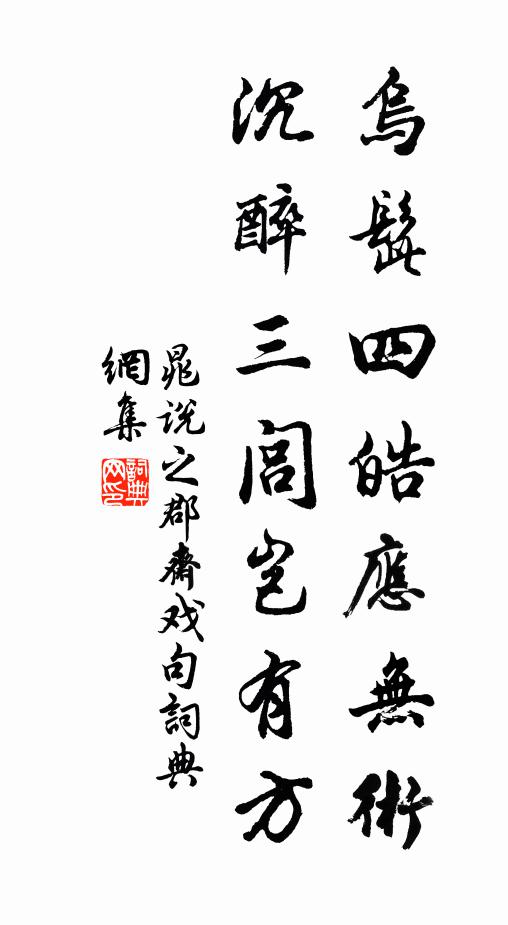 烏髭四皓應無術
沉醉三閭豈有方
晁說之郡齋戏句詞典
網集
詞典網印